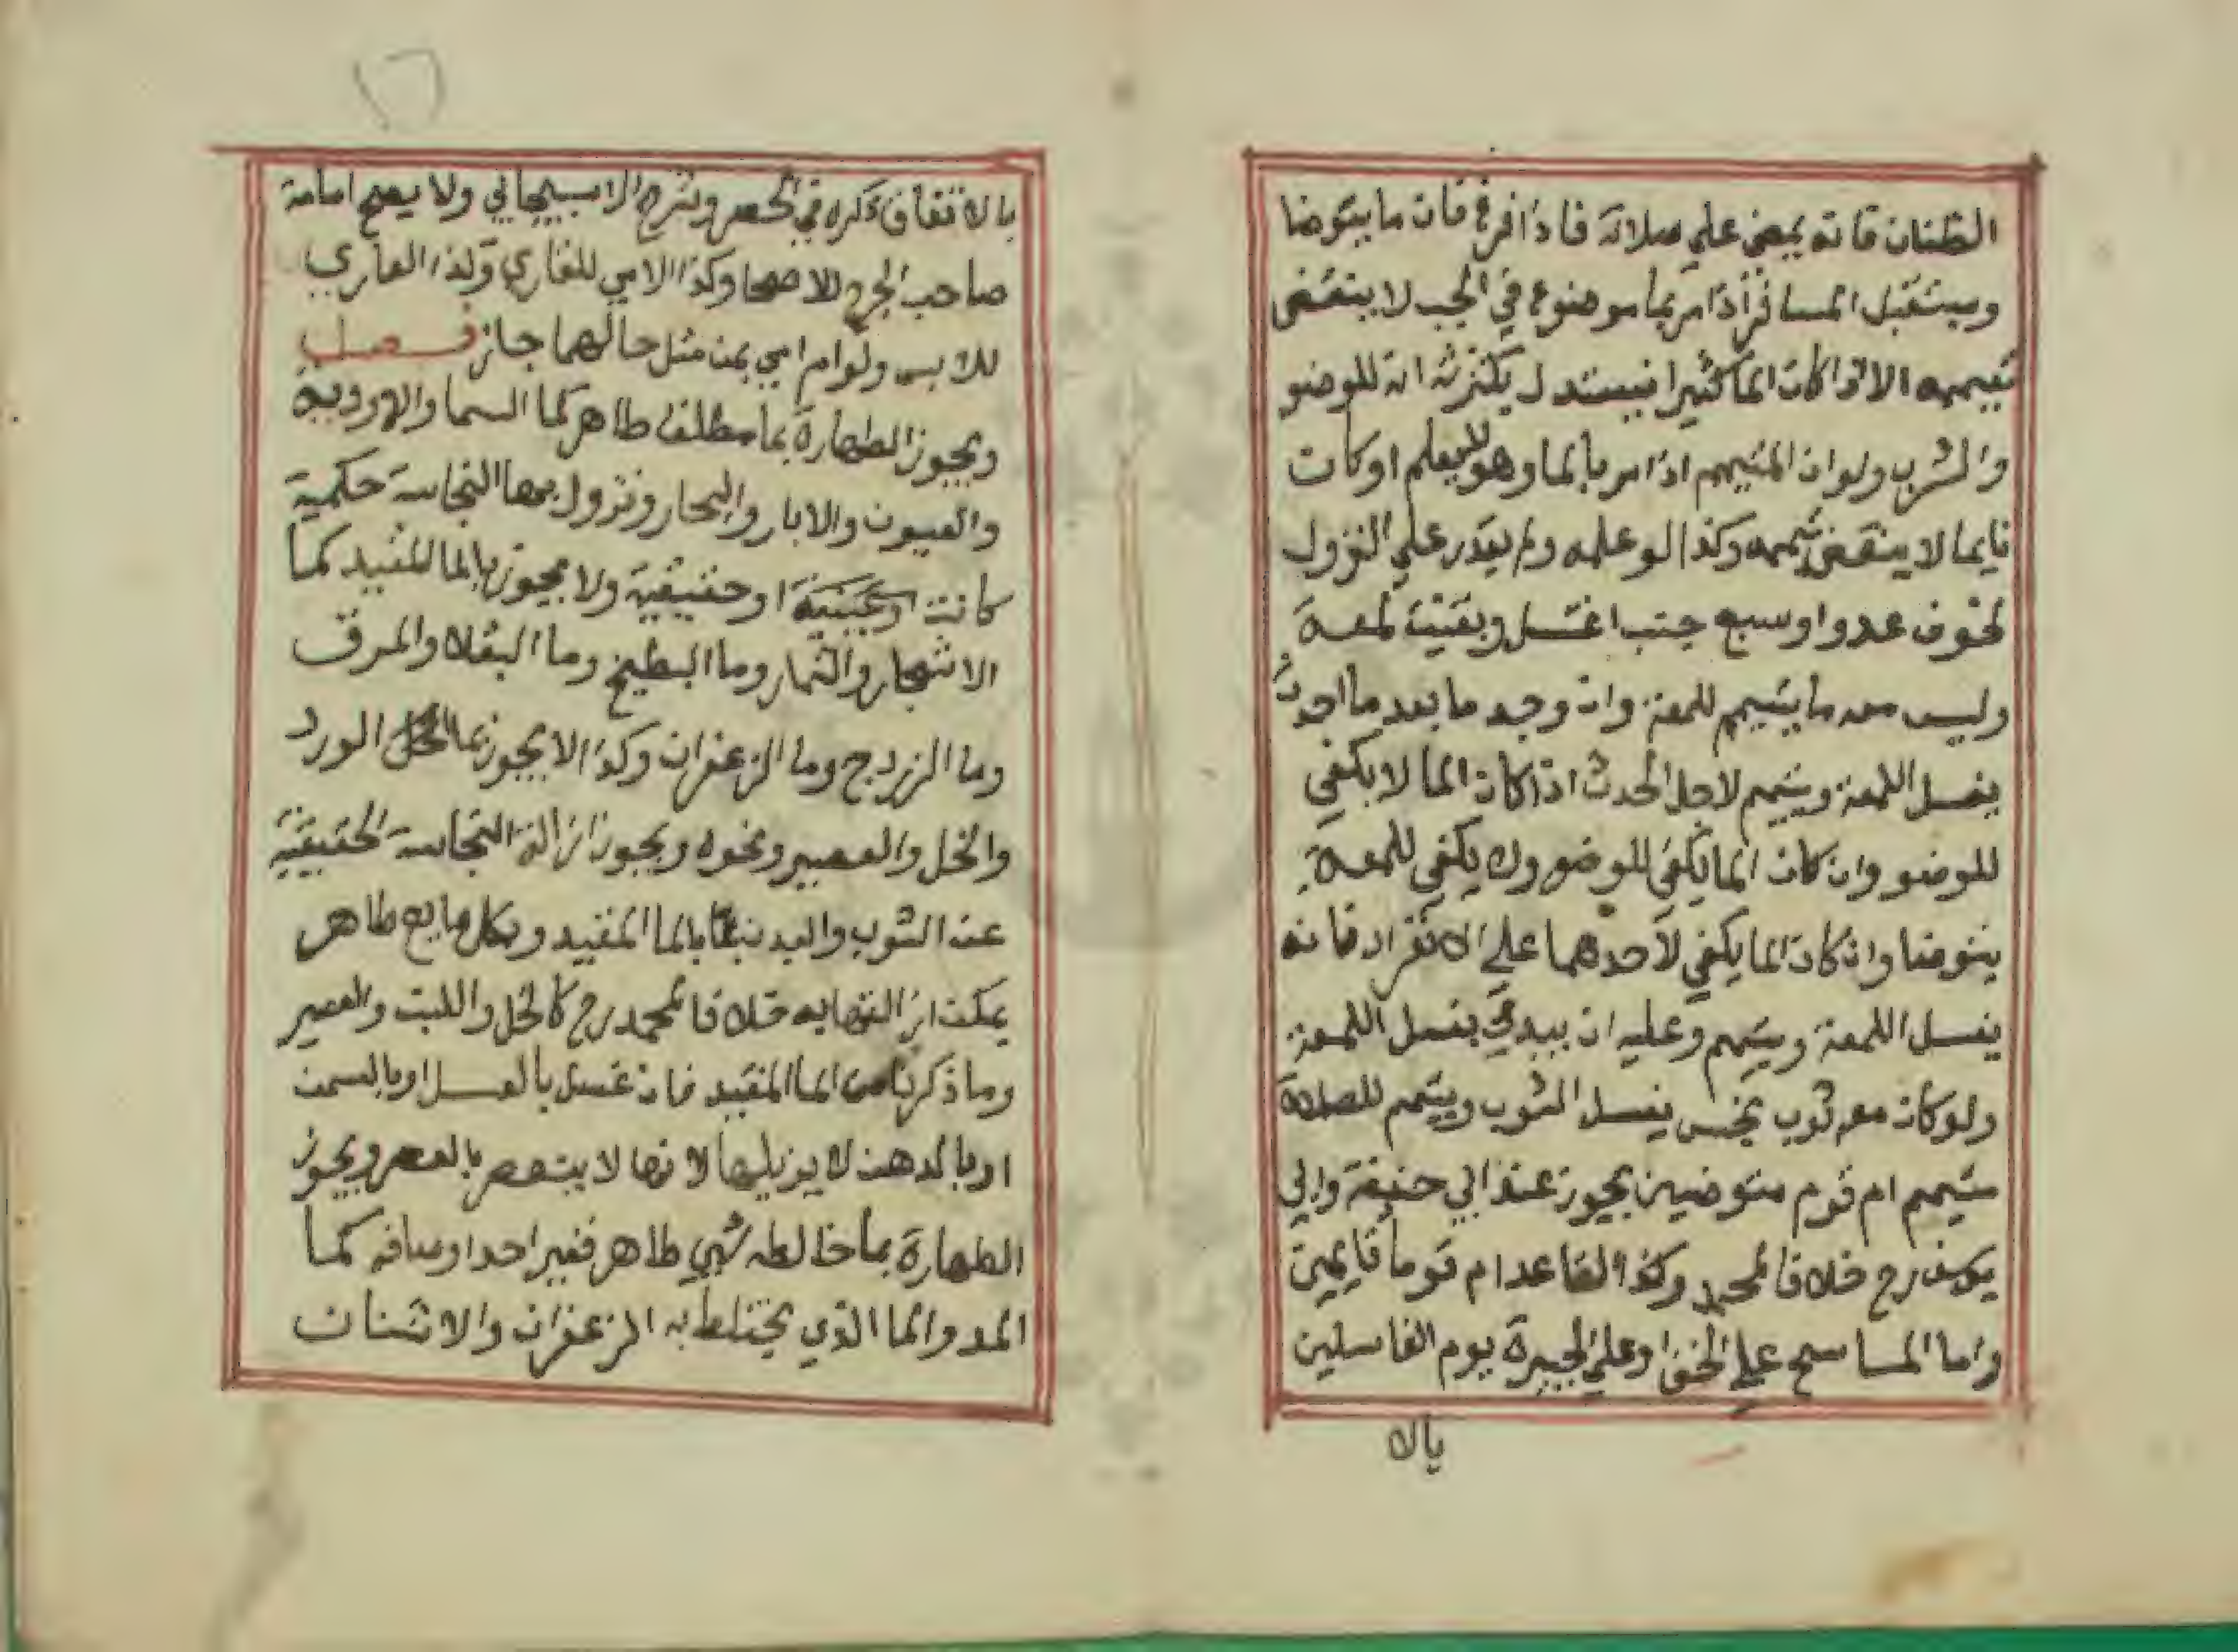 الظنان فانه يمضي علي صلاته فاذا فرغ فان ما يتوضا
ويستقبل المسافر اذا مر بما موضوع في الجب لا ينتقض
تيممه الا اذا كان الما كثيرا فيستدل بكثرته انه للوضو
والشرب ولو ان المتيمم اذا مر بالما وهو لا يعلم او كان
نايما لا ينتقض تيممه وكذا لو علمه ولم يقدر علي النزول
لخوف عدو او سبع جنب اغتسل وبقيت لمعة
وليس معه ما يتيمم للمعة وان وجد ما بعد ما احدث
يغسل اللمعة ويتيمم لاجل الحدث اذا كان الما لا يكفي
للوضو وان كان الما يكفي للوضو ولا يكفي للمعة
يتوضا وان كان الما يكفي لاحدهما علي الانفراد فانه
يغسل اللمعة ويتيمم وعليه ان يبدي بغسل اللمعة
ولو كان معه ثوب نجس يغسل الثوب ويتيمم للصلاة
متيمم ام قوم متوضين يجوز عند ابي حنيفة وابي
يوسف رح خلافا لمحمد وكذا القاعد ام قوما قايمين
واما الماسح علي الخف او علي الجبيرة يوم الغاسلين
بالا
بالاتفاق ذكره في الحصر وشرح الاسبيجابي ولا يصح امامة
صاحب الجرح للاصحا وكذا الامي للقاري وكذا العاري
للابس ولو ام امي بمن مثل حالهما جاز فصل
ويجوز الطهارة بما مطلق طاهر كما السما والاودية
والعيون والابار والبحار وتزول بها النجاسة حكمية
كانت او حقيقية ولا يجوز بالما المقيد كما
الاشجار والثمار وما البطيخ وما البقلا والمرق
وما الزردج وما الزعفران وكذا لا يجوز بما الورد
والخل والعصير ونحوه ويجوز ازالة النجاسة الحقيقية
عن الثوب والبدن بالما المقيد وبكل مايع طاهر
يمكن ازالتها به خلافا لمحمد رح كالخل واللبن والعصير
وما ذكرنا من الما المقيد فان غسل بالعسل او بالسمن
او بالدهن لا يزيلها لانها لا يتعصر بالعصر ويجوز
الطهارة بما خالطه شي طاهر فغير احد اوصافه كما
المد والما الذي يختلط به الزعفران والاشنان